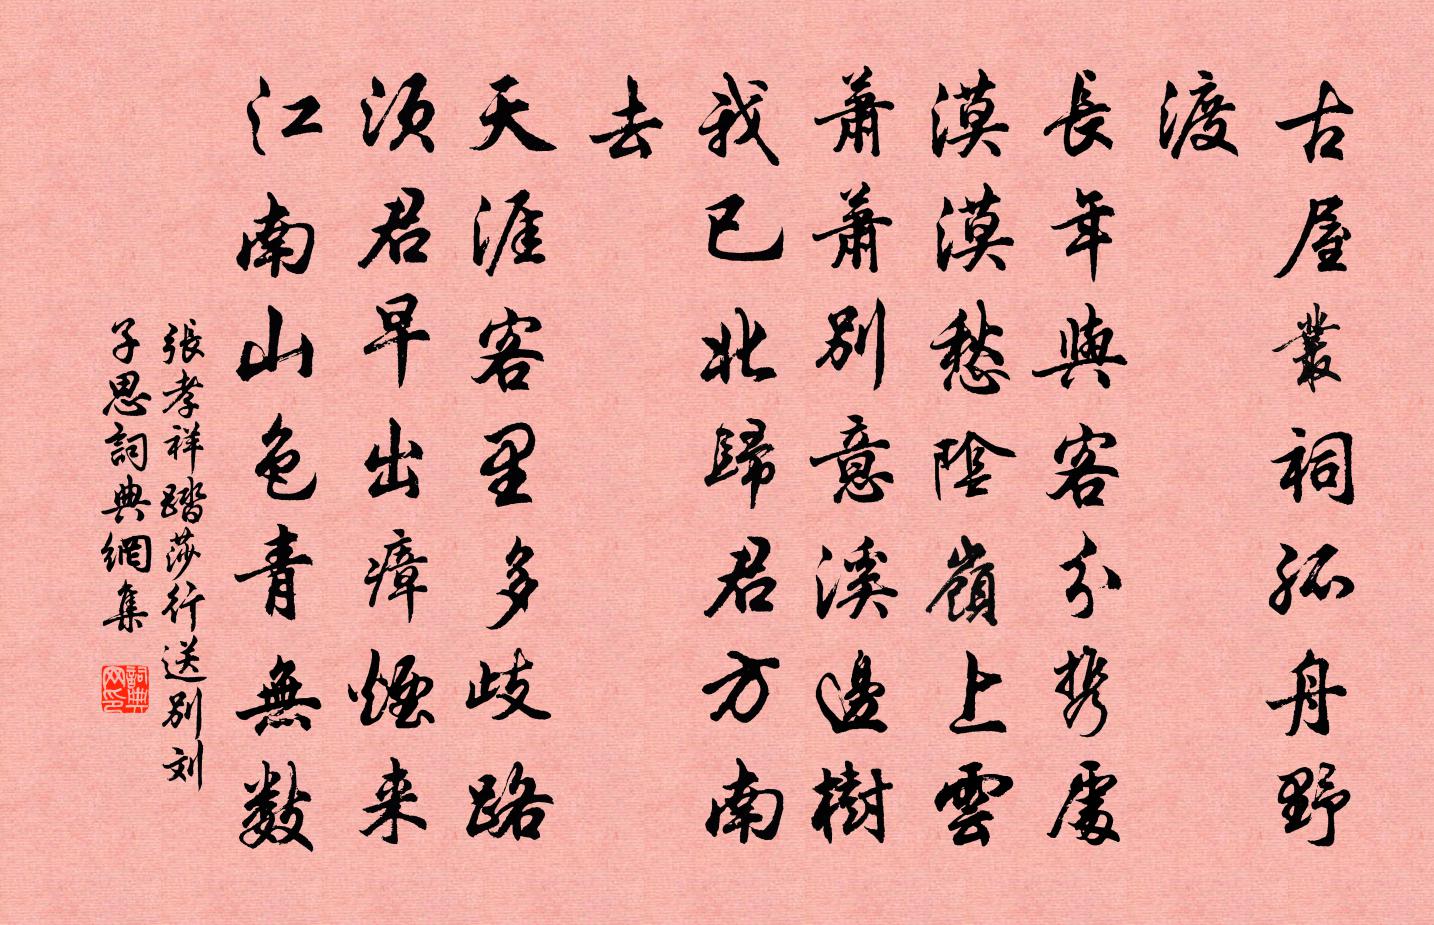 古屋叢祠孤舟野
渡
長年與客分携處
漠漠愁陰嶺上雲
蕭蕭別意溪邊樹
我已北歸君方南
去
天涯客里多岐路
須君早出瘴煙来
江南山色青無數
張孝祥踏莎行送別刘
子思詞典網集
詞典
网印